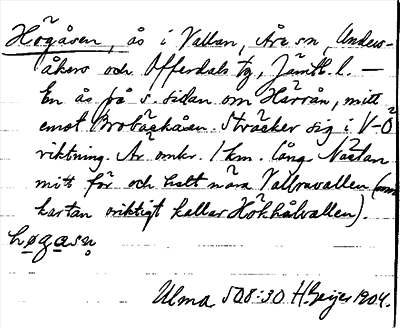 Högåsen, ås i Vallan, Åre sn, Unders-
åkers och Offerdals tg, Jämtl. l. —
En ås på s. sidan om Härrån, mitt
emot Brobäckåsen. Sträcker sig i V-Ö
riktning. Är omkr. 1 km. lång. Nästan
mitt för och helt nära Vallravallen (som
kartan oriktigt kallar Hökhålvallen).
høgasn̥
Ulma 508:30 H. Geijer 1904.